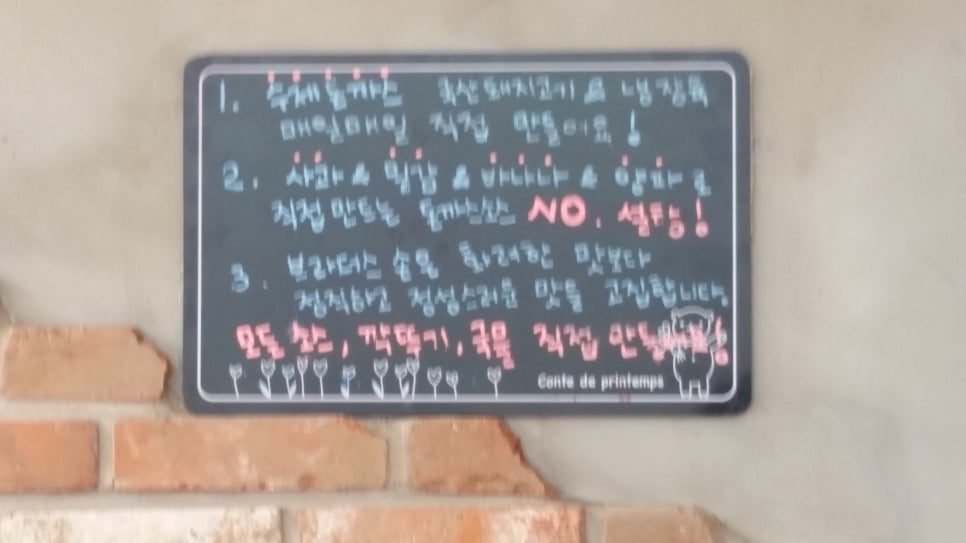 1. 수제돈까스 국산돼지고기 & 냉장육
매일매일 직접 만들어요!
2. 사과 & 밀감 & 바나나 & 양파로
직접만드는 돈까스소스 NO. 설탕!
3. 브라더스 손을 화려한 맛보다
정직하고 정성스러운 맛을 고집합니다.
모든 소스, 깍뚝기, 국물 직접
Conte de printemps